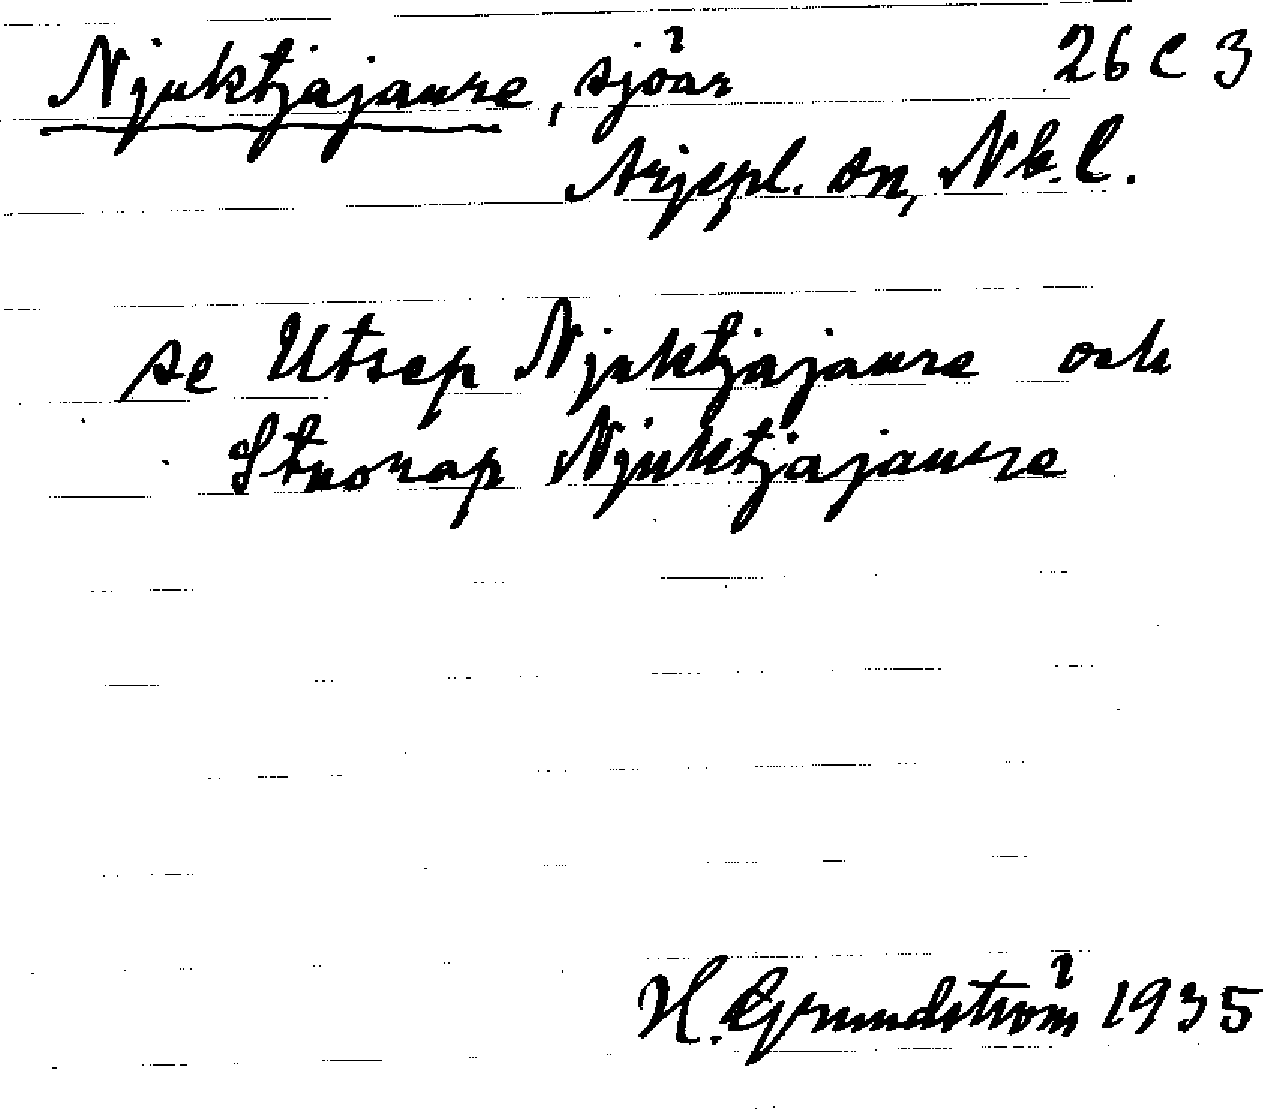 Njuktjajaure, sjöar 26 C 3
Arjepl. sn, Nb.l.
se Utsep Njuktjajaure och
Stuorap Njuktjajaure
H. Grundström 1935